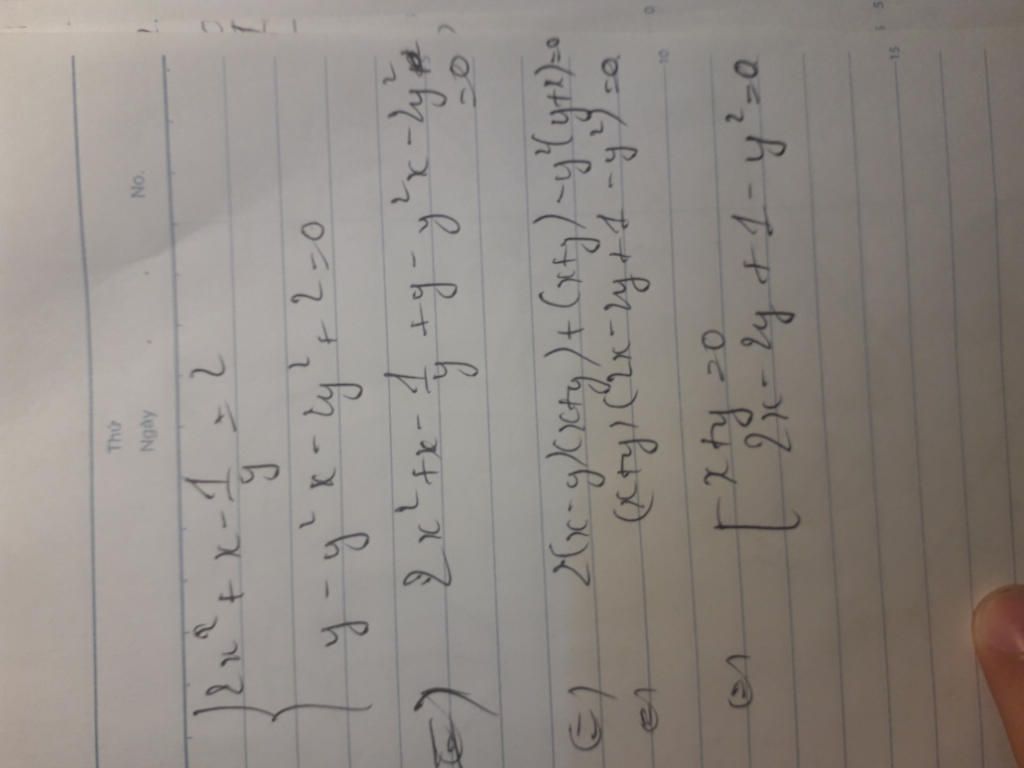 Thứ
Ngày
No.
2x² + x - 1/y = 2
y - y²x - 2y² + 2 = 0
(=) 2x² + x - 1/y + y - y²x - 2y²
= 0
(=) 2(x-y)(x+y) + (x+y) - y²(y+x) = 0
(=) (x+y)(2x - 2y + 1 - y²) = 0
(=) [ x + y = 0
2x - 2y + 1 - y² = 0
10
15